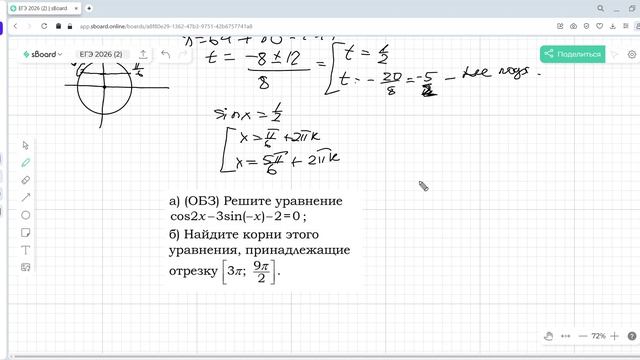 ЕГЭ 2026 (2)
app.sboard.online/boards/a8f80e29-1362-47b2-9755-42b6757741a8
sBoard
ЕГЭ 2026 (2)
Поделиться
t = -8 ± 12 / 8 = [ t = 1/2
t = - 20/8 = -5/2 - не подх.
π/6
sin x = 1/2
x = π/6 + 2πk
x = 5π/6 + 2πk
а) (ОБЗ) Решите уравнение
cos2x−3sin(−x)−2=0;
б) Найдите корни этого
уравнения, принадлежащие
отрезку [3π; 9π/2].
72%